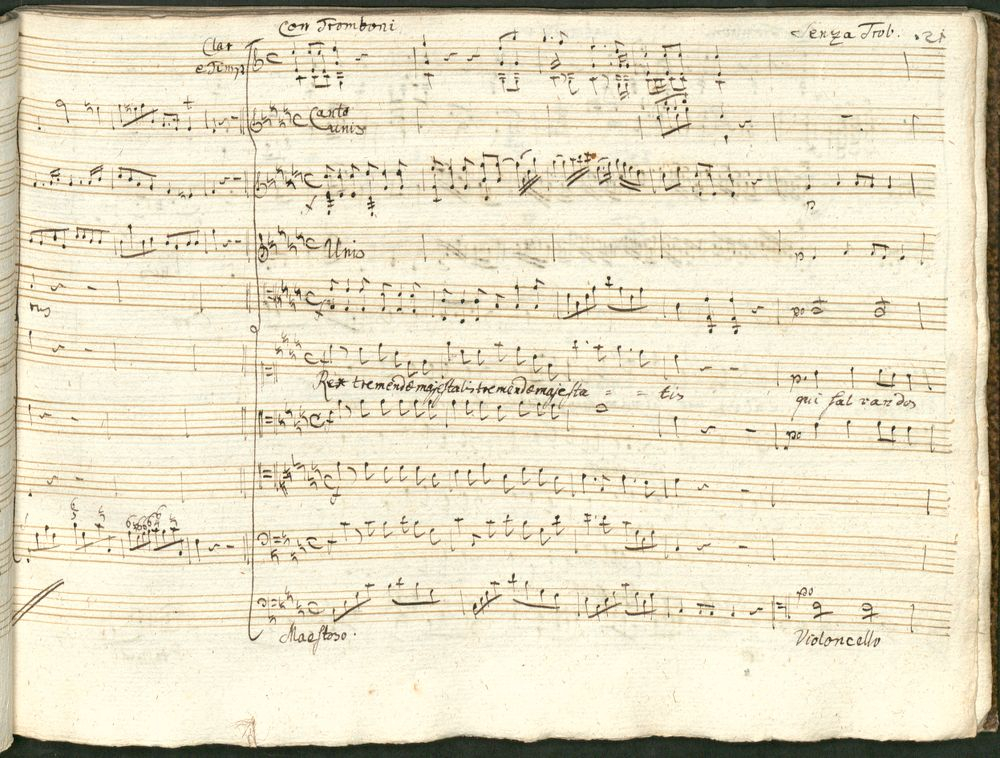 Con Tromboni
Senza Trob. 21
Clar
e Timp
Canto
unis
Unis
f
p
p.
nis
f
po
f
p.
Rex tremendæ majestatis tremendæ majesta = = tis
qui salvandos
f
po
f
f
po
Maestoso.
Violoncello